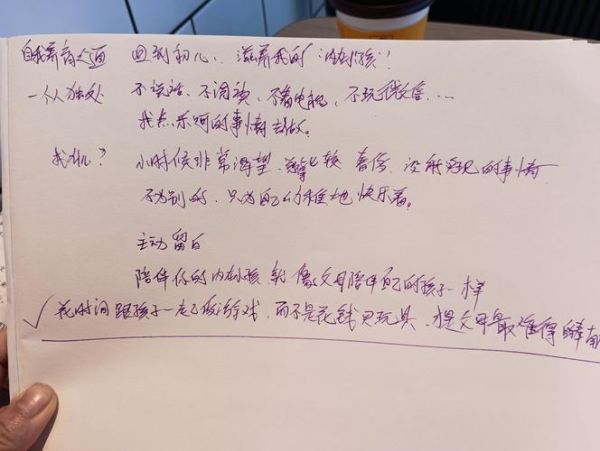 自我养育之道 回到初心、滋养我的“内在小孩”!
一个人独处 不说话、不阅读、不看电视、不玩微信…
找点乐呵的事情去做。
找啥? 小时候非常渴望、比较 没有实现的事情
不为别的、只为自己幼稚地快乐着。
主动留白
陪伴你的内在小孩 就像父母陪伴自己的孩子一样
✓ 花时间跟孩子一起做游戏、而不是花钱买玩具、才是父母最难得的